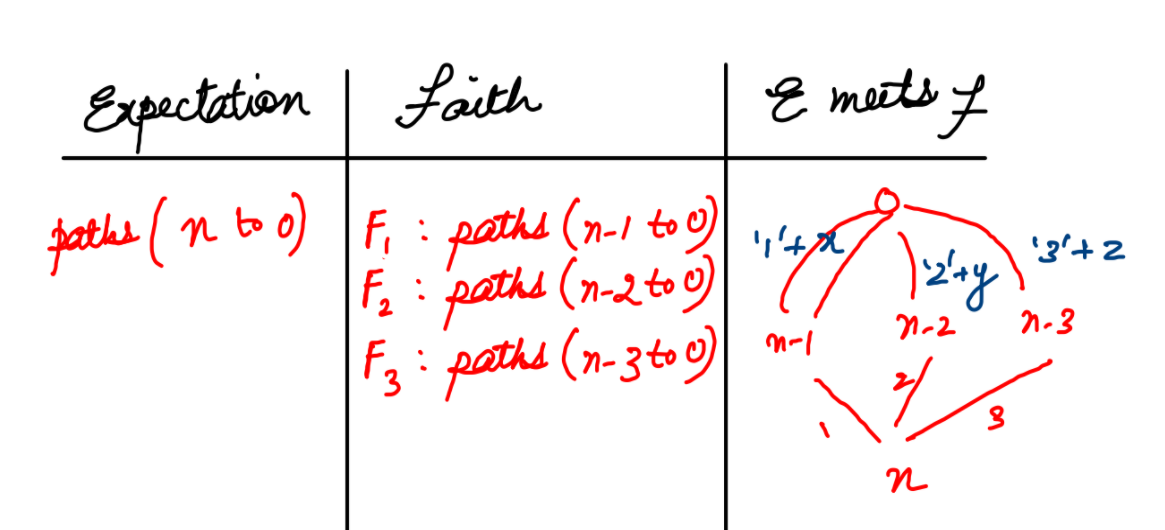 Expectation Faith E meets F
paths( n to 0) F1 : paths (n-1 to 0)
F2 : paths (n-2 to 0)
F3 : paths (n-3 to 0)
0
'1'+ x '2'+y '3'+ z
n-1 n-2 n-3
1 2 3
n